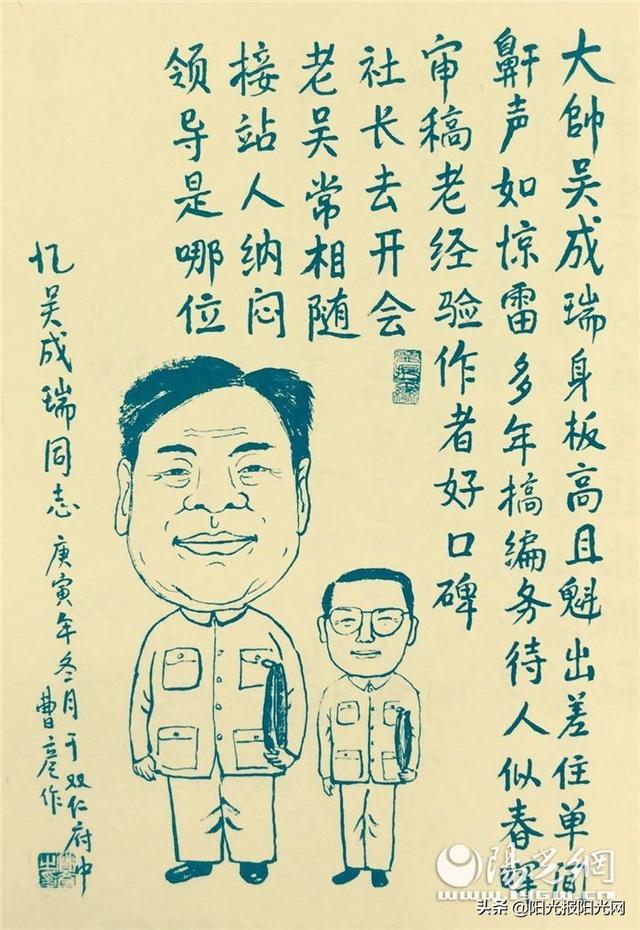 大帥吴成瑞身板高且魁出差住单间
鼾声如惊雷多年搞编务待人似春晖
审稿老经验作者好口碑
社长去开会
老吴常相随
接站人纳闷
领导是哪位
忆吴成瑞同志 庚寅年冬月于双仁府中
曹彦作
陽光網
头条 @阳光报阳光网